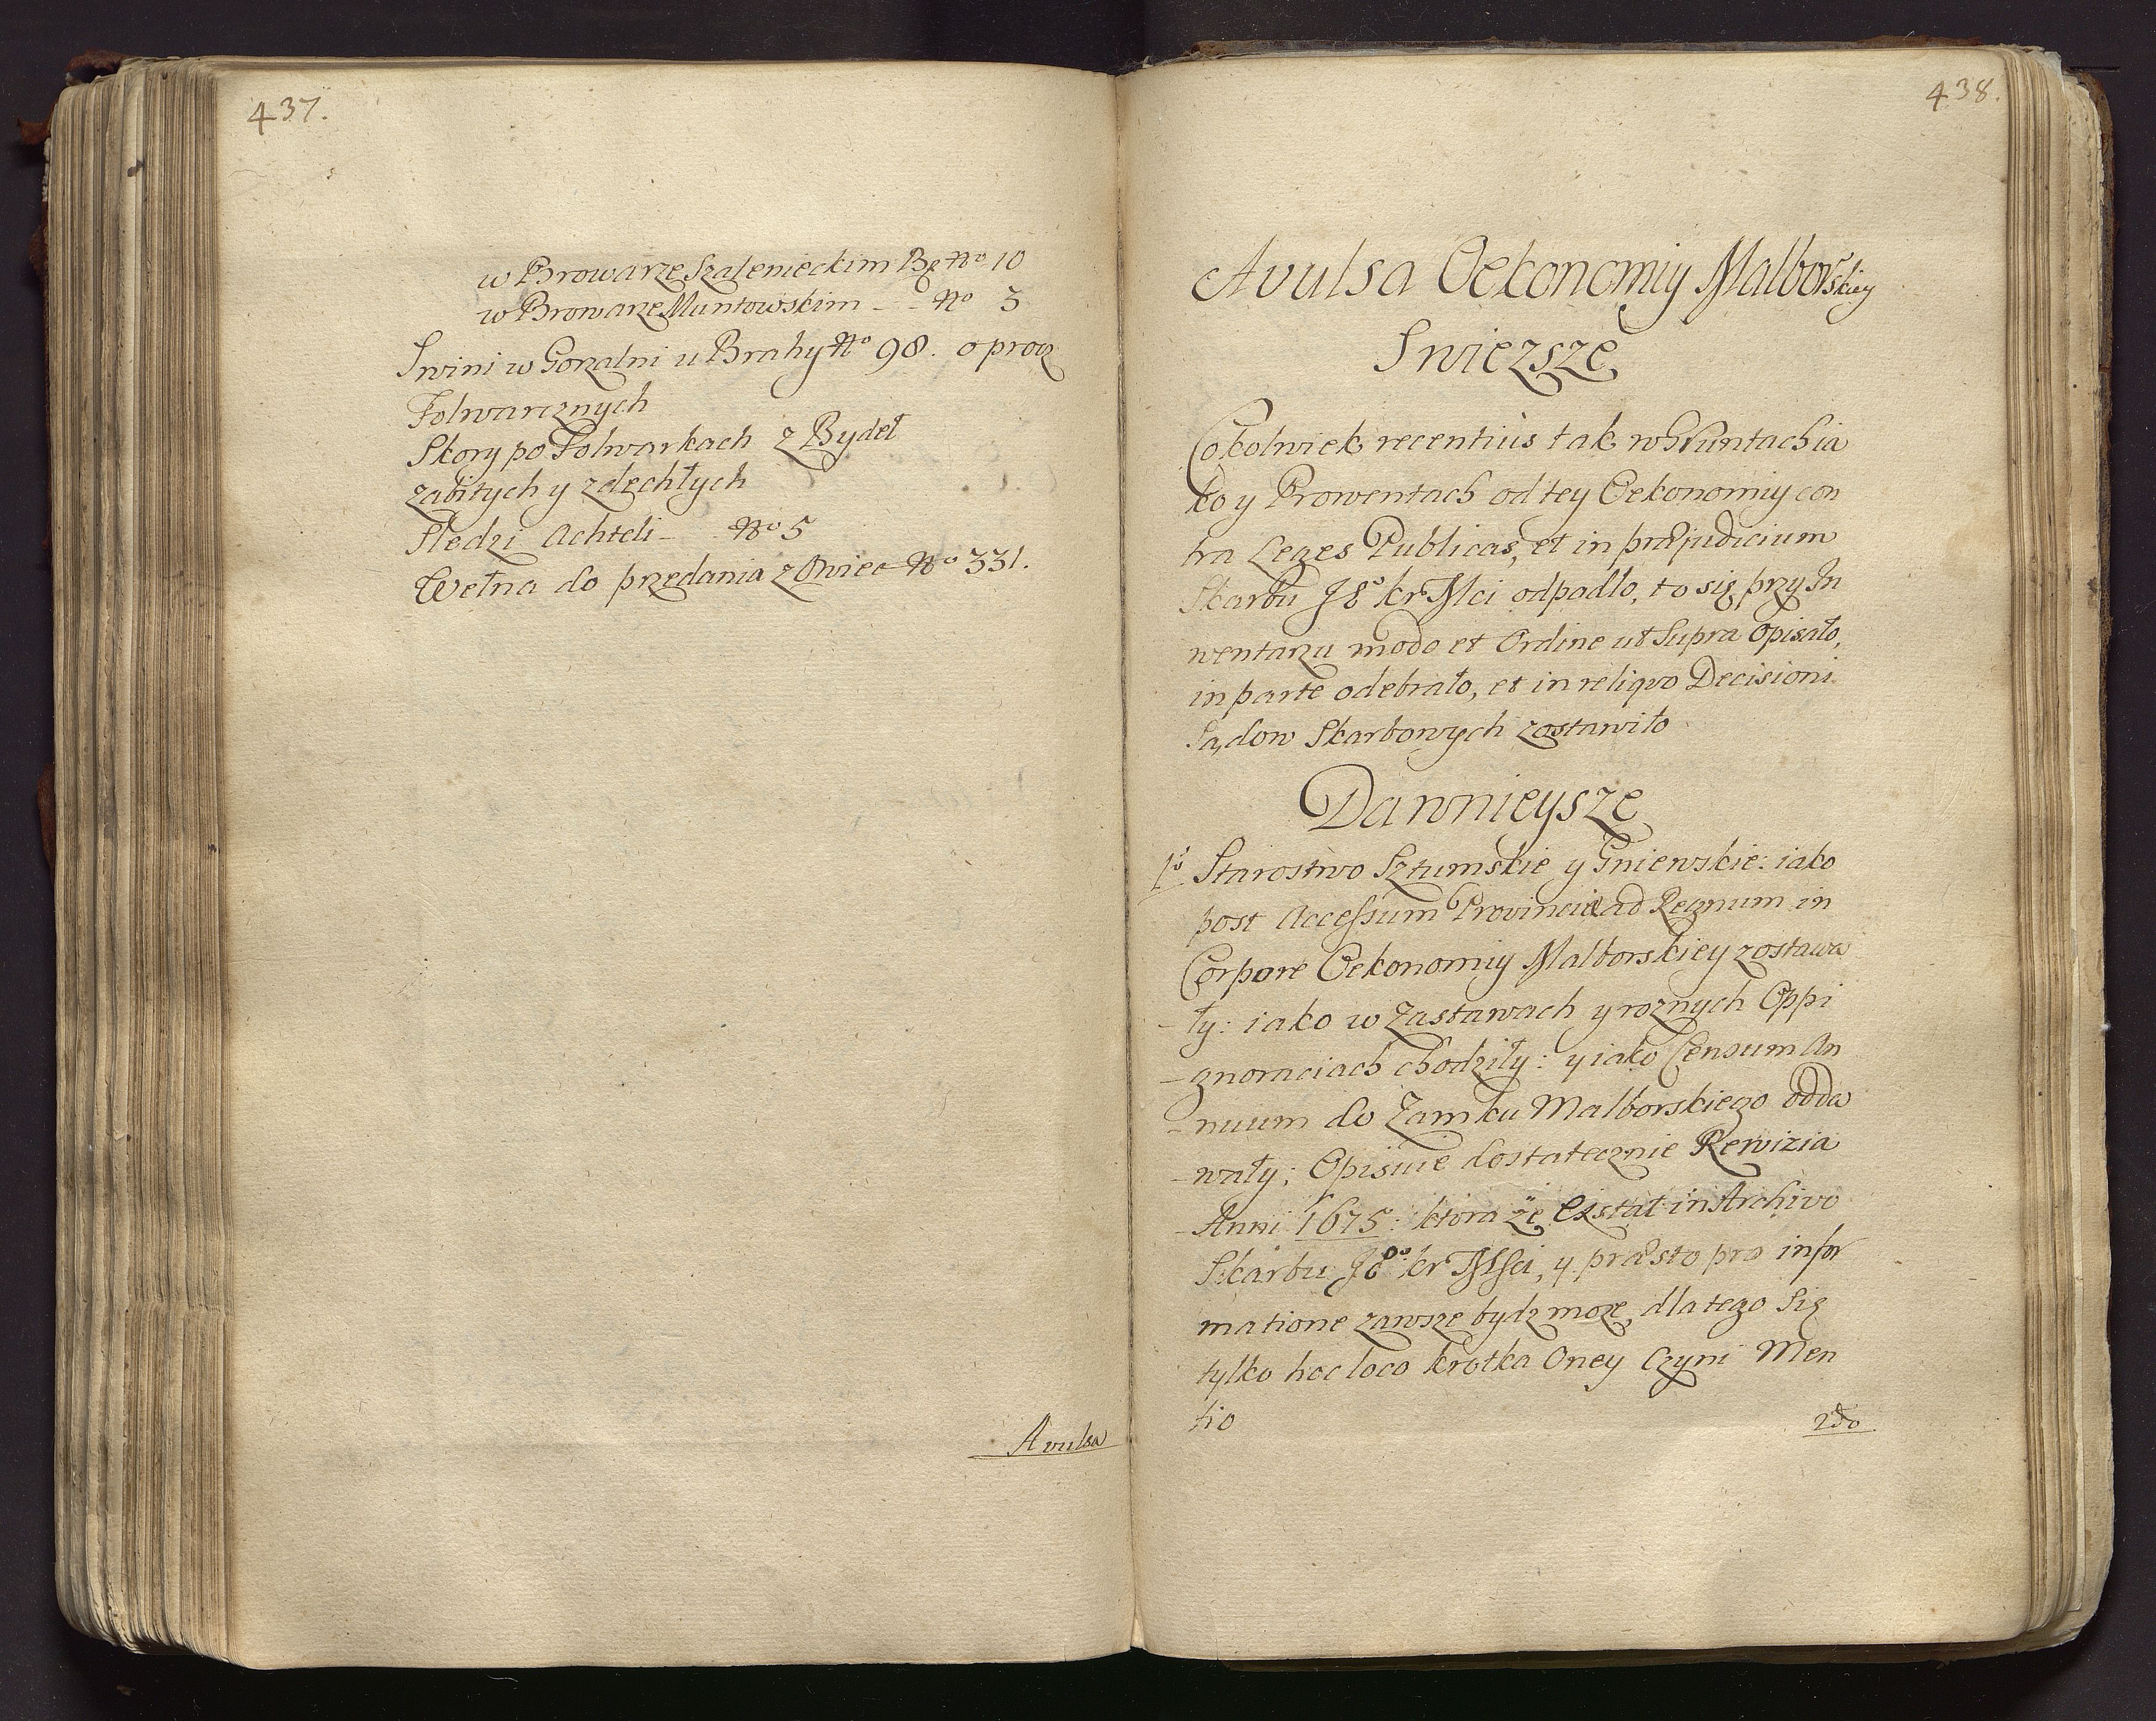 437.
w Browarze Szalenieckim Bę No 10
w Browarze Muntowskim - - No 3
Swini w Gorzalni u Brahy No 98. oprocz
Folwarcznych
Skory po Folwarkach z Bydeł
zabitych y zdechłych
Sledzi Achteli - No 5
Wełna do przędania z Owiec No 331.
Avulsa
438.
Avulsa Oekonomiy Malborskiey
Swiezsze
Cokolwiek recentius tak w Gruntach ia
ko y Prowentach od tey Oekonomiy con
tra Leges Publicas, et in præjudicium
Skarbu JGo kr Mci odpadło, to się przy In
wentarzu modo et Ordine ut Supra opisało,
in parte odebrało, et in reliquo Decisioni
Sądow Skarbowych zostawiło
Dawnieysze
1o Starostwo Sztumskie y Gniewskie: iako
post Accessum Provinciæ ad Regnum in
Corpore Oekonomiy Malborskiey zostawa
-ły: iako w Zastawach y roznych Oppi
-gnoraciach chodziły: y iako Censum An
-nuum do Zamku Malborskiego odda
-wały; Opisuie dostatecznie Rewizia
Anni 1675: ktora że Exstat in Archivo
Skarbu JGo kr Mści, y præsto pro infor
matione zawsze bydz moze, dla tego Się
tylko hoc loco krotka Oney Czyni Men
tio
2do